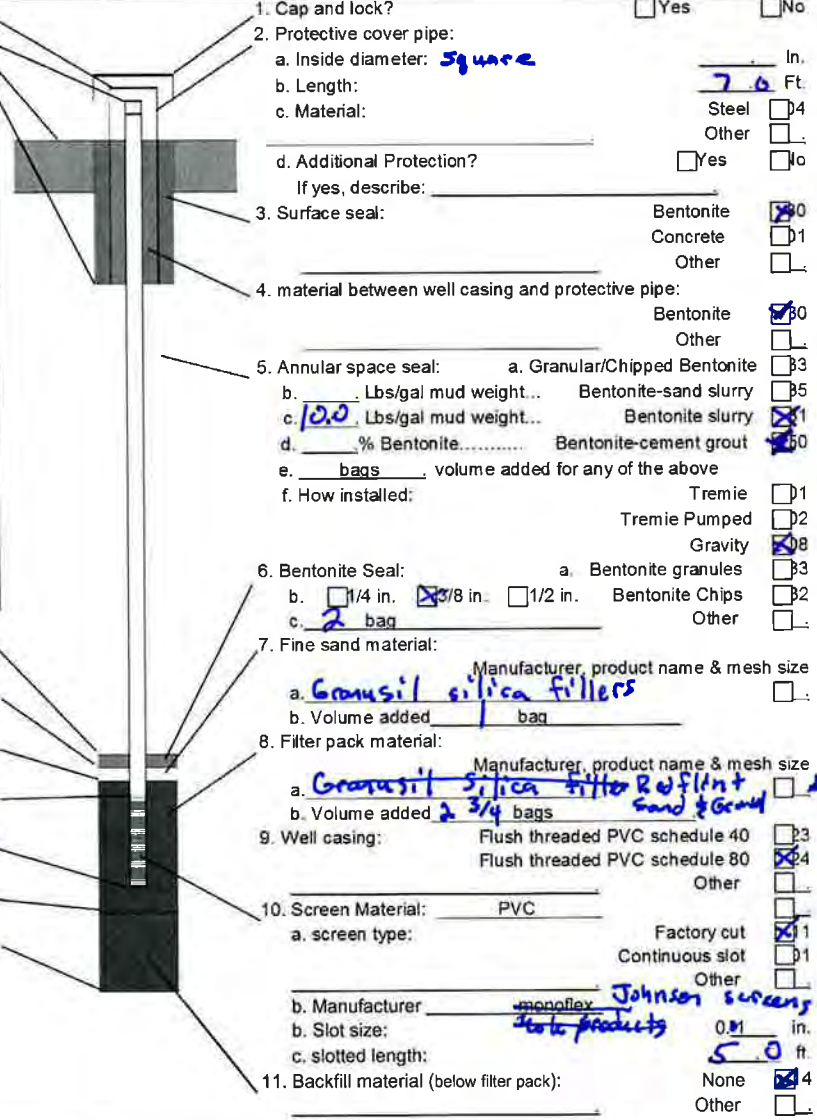 1. Cap and lock? Yes No
2. Protective cover pipe:
a. Inside diameter: Square . In.
b. Length: 7.0 Ft.
c. Material: Steel 04
Other .
d. Additional Protection? Yes No
If yes, describe: .
3. Surface seal: Bentonite 30
Concrete 01
Other .
4. material between well casing and protective pipe:
Bentonite 30
Other .
5. Annular space seal: a. Granular/Chipped Bentonite 33
b. . Lbs/gal mud weight... Bentonite-sand slurry 35
c. 10.0 . Lbs/gal mud weight... Bentonite slurry 31
d. % Bentonite........... Bentonite-cement grout 50
e. bags . volume added for any of the above
f. How installed: Tremie 01
Tremie Pumped 02
Gravity 08
6. Bentonite Seal: a. Bentonite granules 33
b. 1/4 in. 3/8 in. 1/2 in. Bentonite Chips 32
c. 2 bag Other .
7. Fine sand material:
Manufacturer, product name & mesh size
a. Granusil silica fillers .
b. Volume added 1 bag
8. Filter pack material:
Manufacturer, product name & mesh size
a. Granusil Silica filler Red flint
Sand & Gravel
b. Volume added 2 3/4 bags
9. Well casing: Flush threaded PVC schedule 40 23
Flush threaded PVC schedule 80 24
Other .
10. Screen Material: PVC .
a. screen type: Factory cut 11
Continuous slot 01
Other .
b. Manufacturer monoflex Johnson screens
products
b. Slot size: 0. in.
c. slotted length: 5.0 ft.
11. Backfill material (below filter pack): None 14
Other .